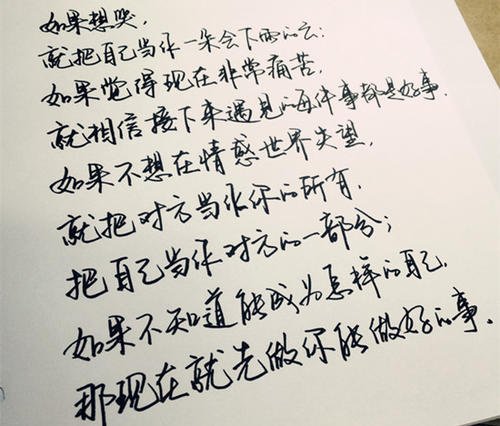 如果想哭，
就把自己当作一朵会下雨的云；
如果觉得现在非常痛苦，
就相信接下来遇见的每件事都是好事。
如果不想在情感世界失望，
就把对方当作你的所有，
把自己当作对方的一部分；
如果不知道能成为怎样的自己，
那现在就先做你能做好的事。